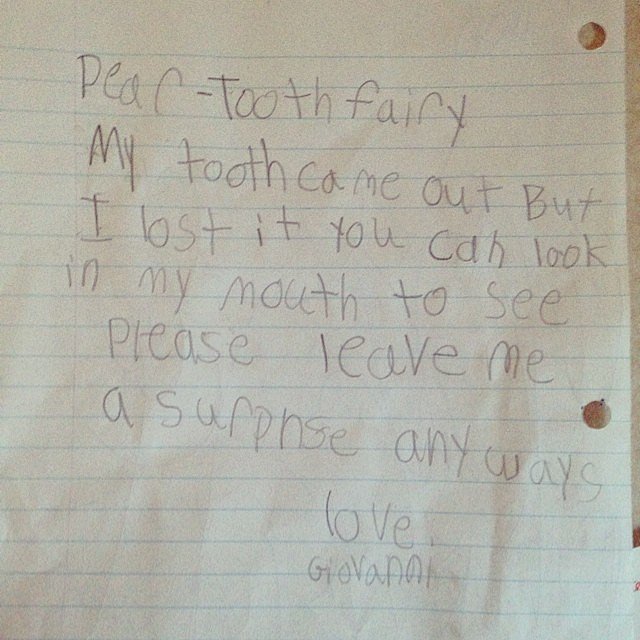 Dear-Tooth fairy
My tooth came out But
I lost it You can look
in my mouth to see
Please leave me
a surprise anyways
love,
Giovanni